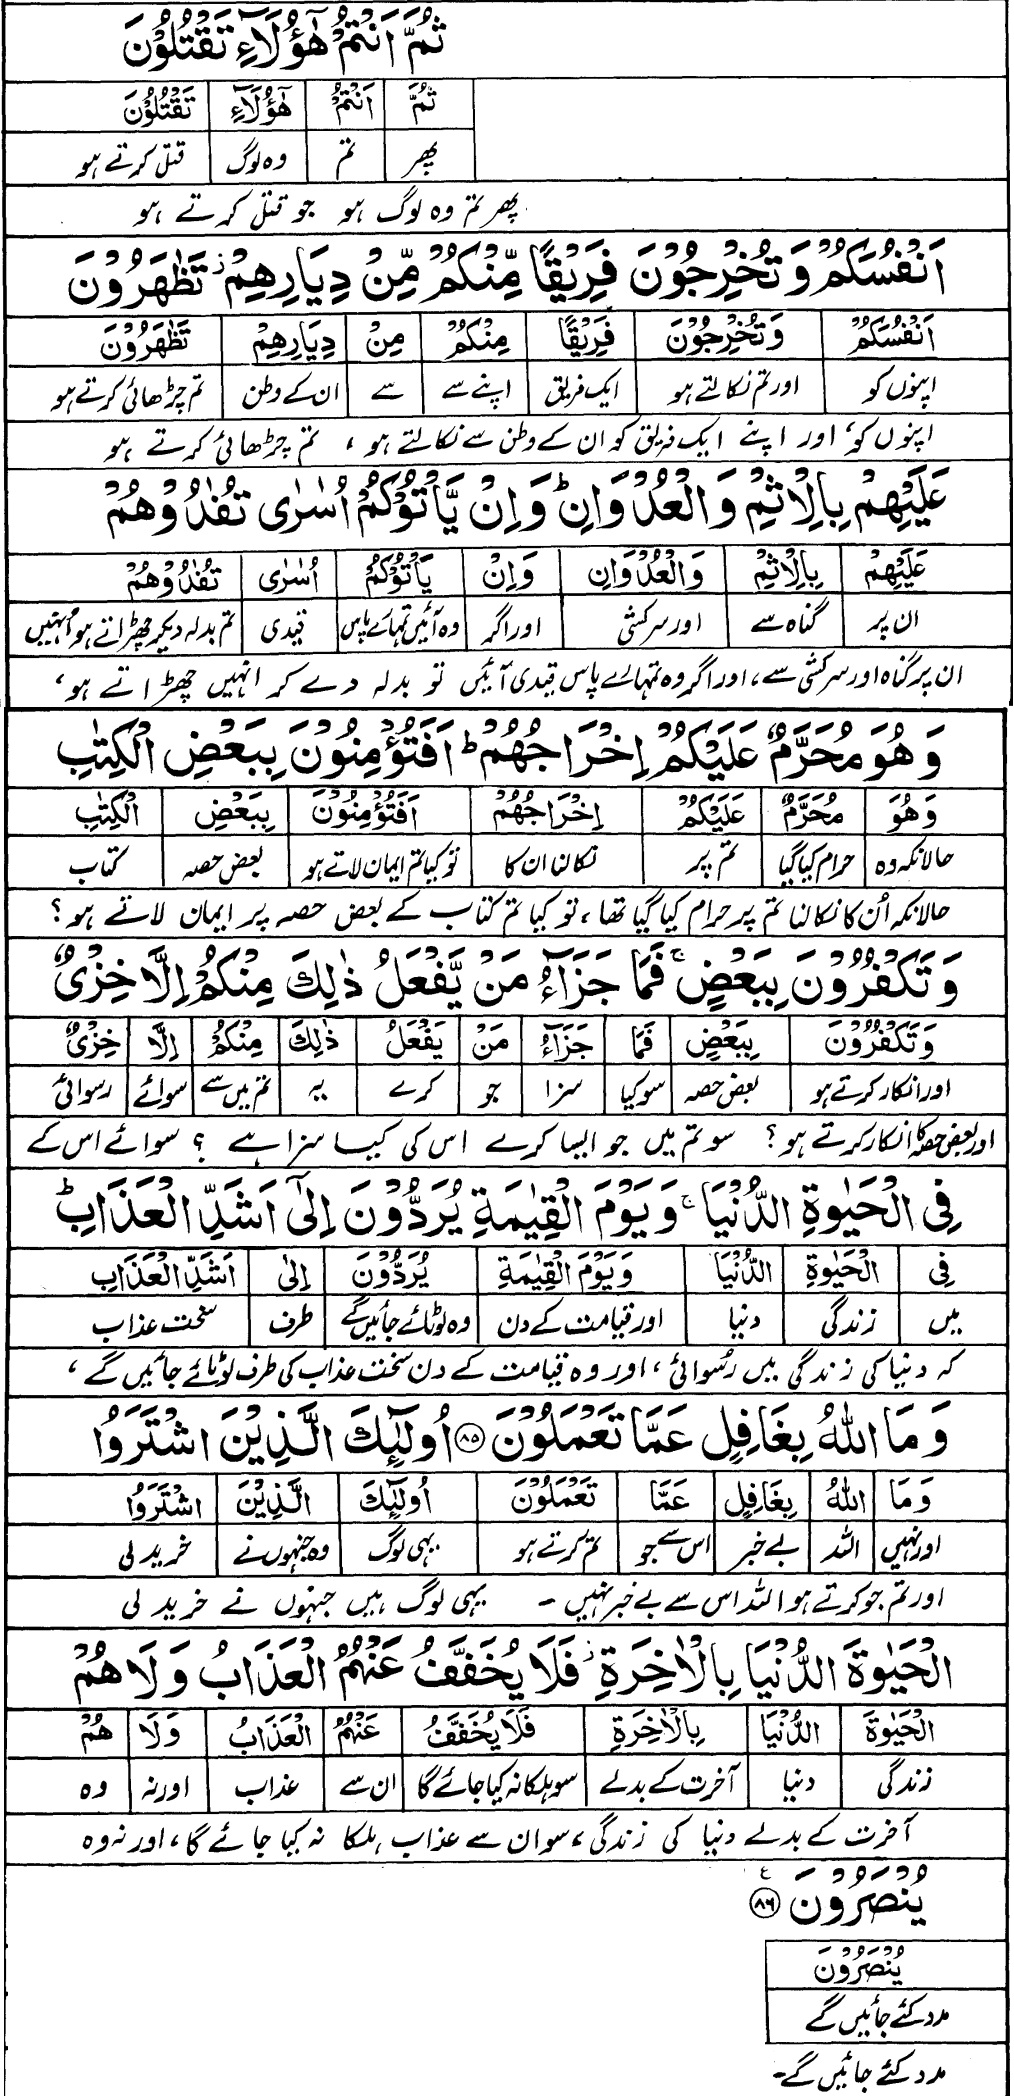 ثُمَّ اَنْتُمْ هٰٓؤُلَآءِ تَقْتُلُوْنَ
ثُمَّ اَنْتُمْ هٰٓؤُلَآءِ تَقْتُلُوْنَ
پھر تم وہ لوگ قتل کرتے ہو
پھر تم وہ لوگ ہو جو قتل کرتے ہو
اَنْفُسَكُمْ وَتُخْرِجُوْنَ فَرِيْقًا مِّنْكُمْ مِّنْ دِيَارِهِمْ ز تَظٰهَرُوْنَ
اَنْفُسَكُمْ وَتُخْرِجُوْنَ فَرِيْقًا مِنْكُمْ مِنْ دِيَارِهِمْ تَظٰهَرُوْنَ
اپنوں کو اور تم نکالتے ہو ایک فریق اپنے سے سے ان کے وطن تم چڑھائی کرتے ہو
اپنوں کو، اور اپنے ایک فریق کو ان کے وطن سے نکالتے ہو، تم چڑھائی کرتے ہو
عَلَيْهِمْ بِالْاِثْمِ وَالْعُدْوَانِ ط وَاِنْ يَّاْتُوْكُمْ اُسٰرٰى تُفٰدُوْهُمْ
عَلَيْهِمْ بِالْاِثْمِ وَالْعُدْوَانِ وَاِنْ يَاْتُوْكُمْ اُسٰرٰى تُفٰدُوْهُمْ
ان پر گناہ سے اور سرکشی اور اگر وہ آئیں تمہارے پاس قیدی تم بدلہ دیکر چھڑاتے ہو اُنہیں
ان پر گناہ اور سرکشی سے، اور اگر وہ تمہارے پاس قیدی آئیں تو بدلہ دے کر انہیں چھڑاتے ہو،
وَهُوَ مُحَرَّمٌ عَلَيْكُمْ اِخْرَاجُهُمْ ط اَفَتُؤْمِنُوْنَ بِبَعْضِ الْكِتٰبِ
وَهُوَ مُحَرَّمٌ عَلَيْكُمْ اِخْرَاجُهُمْ اَفَتُؤْمِنُوْنَ بِبَعْضِ الْكِتٰبِ
حالانکہ وہ حرام کیا گیا تم پر نکالنا ان کا تو کیا تم ایمان لاتے ہو بعض حصہ کتاب
حالانکہ اُن کا نکالنا تم پر حرام کیا گیا تھا، تو کیا تم کتاب کے بعض حصہ پر ایمان لاتے ہو؟
وَتَكْفُرُوْنَ بِبَعْضٍ ج فَمَا جَزَآءُ مَنْ يَّفْعَلُ ذٰلِكَ مِنْكُمْ اِلَّا خِزْىٌ
وَتَكْفُرُوْنَ بِبَعْضٍ فَمَا جَزَآءُ مَنْ يَفْعَلُ ذٰلِكَ مِنْكُمْ اِلَّا خِزْىٌ
اور انکار کرتے ہو بعض حصہ سو کیا سزا جو کرے یہ تم میں سے سوائے رسوائی
اور بعض حصہ کا انکار کرتے ہو؟ سو تم میں جو ایسا کرے اس کی کیا سزا ہے؟ سوائے اس کے
فِى الْحَيٰوةِ الدُّنْيَا ج وَيَوْمَ الْقِيٰمَةِ يُرَدُّوْنَ اِلٰٓى اَشَدِّ الْعَذَابِ ط
فِى الْحَيٰوةِ الدُّنْيَا وَيَوْمَ الْقِيٰمَةِ يُرَدُّوْنَ اِلٰى اَشَدِّ الْعَذَابِ
میں زندگی دنیا اور قیامت کے دن وہ لوٹائے جائیں گے طرف سخت عذاب
کہ دنیا کی زندگی میں رسوائی، اور وہ قیامت کے دن سخت عذاب کی طرف لوٹائے جائیں گے،
وَمَا اللّٰهُ بِغَافِلٍ عَمَّا تَعْمَلُوْنَ ٨٥ اُولٰٓئِكَ الَّذِيْنَ اشْتَرَوُا
وَمَا اللّٰهُ بِغَافِلٍ عَمَّا تَعْمَلُوْنَ اُولٰٓئِكَ الَّذِيْنَ اشْتَرَوُا
اور نہیں اللہ بے خبر اس سے جو تم کرتے ہو یہی لوگ وہ جنہوں نے خرید لی
اور تم جو کرتے ہو اللہ اس سے بے خبر نہیں۔ یہی لوگ ہیں جنہوں نے خرید لی
الْحَيٰوةَ الدُّنْيَا بِالْاٰخِرَةِ ز فَلَا يُخَفَّفُ عَنْهُمُ الْعَذَابُ وَلَا هُمْ
الْحَيٰوةَ الدُّنْيَا بِالْاٰخِرَةِ فَلَا يُخَفَّفُ عَنْهُمُ الْعَذَابُ وَلَا هُمْ
زندگی دنیا آخرت کے بدلے سو ہلکا نہ کیا جائے گا ان سے عذاب اور نہ وہ
آخرت کے بدلے دنیا کی زندگی، سو ان سے عذاب ہلکا نہ کیا جائے گا، اور نہ وہ
يُنْصَرُوْنَ ع ٨٦
يُنْصَرُوْنَ
مدد کئے جائیں گے
مدد کئے جائیں گے۔